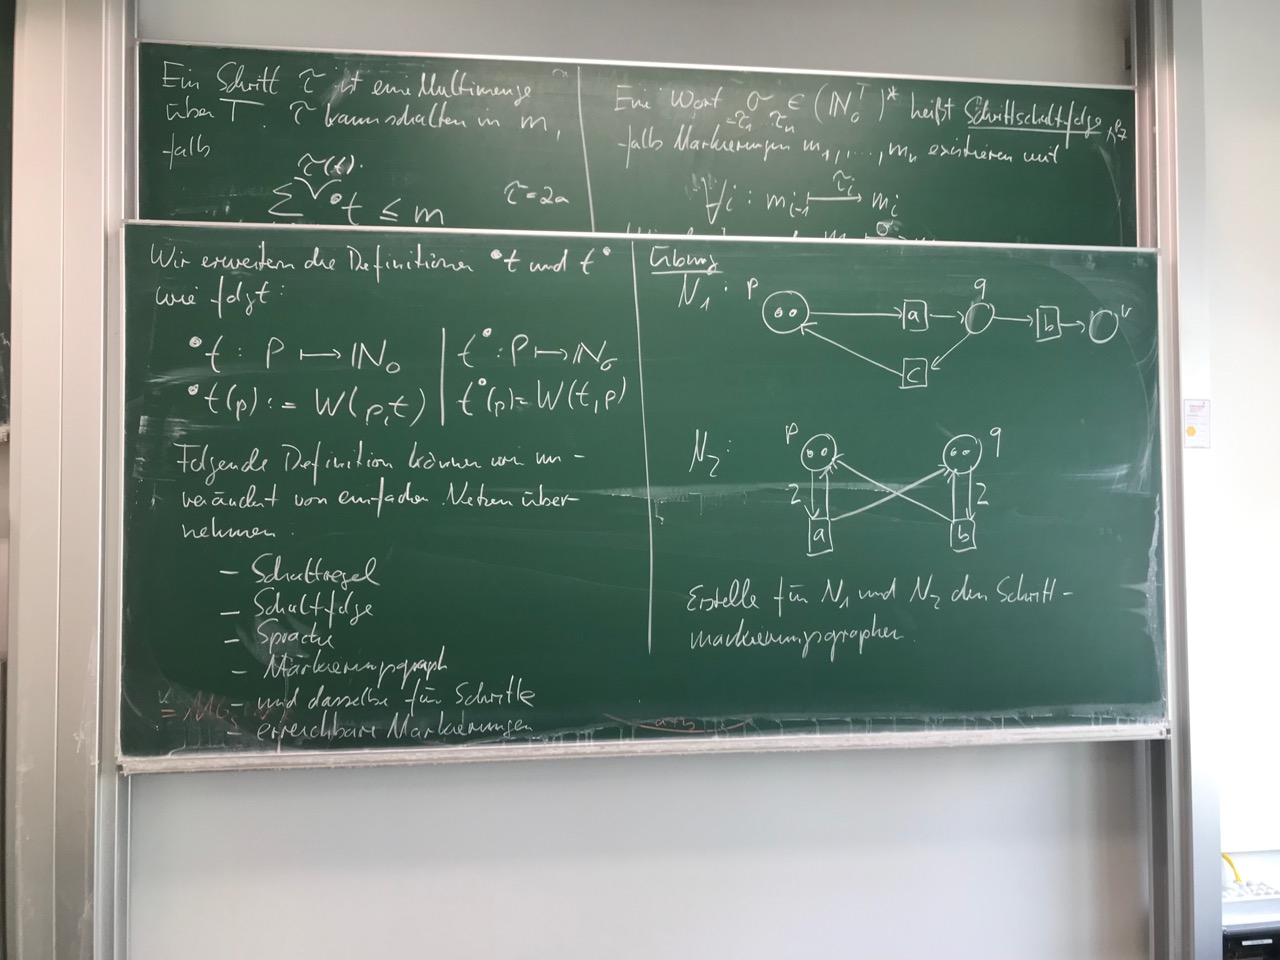 Ein Schritt τ ist eine Multimenge
über T. τ kann schalten in m,
falls
τ(t)·
Σ •t ≤ m
τ=2a
Ein Wort σ ∈ (ℕ₀ᵀ)* heißt Schrittschaltfolge,
=τ₁ τₙ
falls Markierungen m₁,...,mₙ existieren mit
∀i : mᵢ₋₁ ⟼ mᵢ
τᵢ
Wir erweitern die Definitionen •t und t•
wie folgt:
•t : P ⟼ ℕ₀
•t(p) := W(p,t)
t• : P ⟼ ℕ₀
t•(p) = W(t,p)
Folgende Definition können wir un-
verändert von einfachen Netzen über-
nehmen.
- Schaltregel
- Schaltfolge
- Sprache
- Markierungsgraph
- und dasselbe für Schritte
- erreichbare Markierungen
Übung
N₁:
p
a
q
b
r
c
N₂:
p
q
2
2
a
b
Erstelle für N₁ und N₂ den Schritt-
markierungsgraphen.